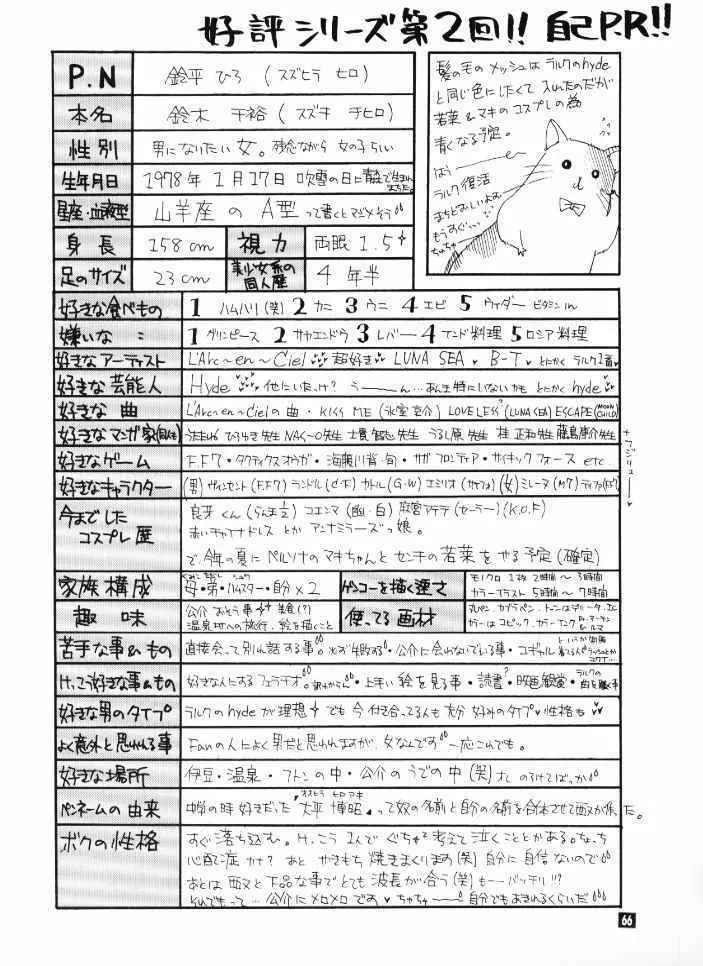 好評シリーズ第2回!! 自己P.R!!
P.N 鈴平 ひろ (スズヒラ ヒロ)
本名 鈴木 千裕 (スズキ チヒロ)
性別 男になりたい女。残念ながら 女の子らしい
生年月日 1978年 1月17日 吹雪の日に
星座・血液型 山羊座 の A型 って書くとマジメそう
身長 158cm 視力 両眼 1.5
足のサイズ 23cm 美少女系の同人歴 4年半
髪の毛のメッシュは ラルクのhyde
と同じ色にしたくて 入れたのだが
若菜&マキのコスプレの為
青くなる予定。
ラルク復活
まちどおしいよぉ
もうすぐ…
ちゅちゅ
好きな食べもの 1 ハムハリ(笑) 2 カニ 3 ウニ 4 エビ 5 ウィダー ビタミンin
嫌いな 〃 1 グリンピース 2 サヤエンドウ 3 レバー 4 インド料理 5 ロシア料理
好きなアーティスト L'Arc~en~Ciel 超好き LUNA SEA B-T とにかく ラルク1番
好きな芸能人 Hyde 他にいたっけ? う――ん…あんま特にいないかも とにかく hyde
好きな 曲 L'Arc~en~Cielの曲・KISS ME (氷室京介) LOVELESS (LUNA SEA) ESCAPE (MOON CHILD)
好きなマンガ家 先生 士貴智志先生 うるし原先生 桂 正和先生 藤島康介先生
好きなゲーム F.F7・タクティクスオウガ・海腹川背・旬・サガ フロンティア・サイキックフォース etc
好きなキャラクター (男) ヴィンセント (F.F7) カトル (G・W) エミリオ (女) ミレーヌ (M7) ティファ (F.F7)
今までしたコスプレ歴 良牙くん (らんま½) コエンマ (幽・白) 麻宮アテナ (K.O.F)
赤いチャイナドレス とか アンナミラーズっ娘。
で 今年の夏に ペルソナのマキちゃんと センチの若菜 を やる予定 (確定)
家族構成 母・弟・ハムスター・自分×2 ゲンコーを描く速さ モノクロ 1枚 2時間~3時間
カラーイラスト 5時間~7時間
趣味 公介 おそう事
温泉地への旅行、絵を描くこと 使ってる画材 丸ペン、カブラペン、トーンはデリータ、I.C
カラーはコピック、カラーインク
苦手な事&もの 直接会って別れ話する事。・公介に会えないでいる事・コギャル
けっこう好きな事&もの 好きな人にするフェラチオ。・上手い絵を見る事・読書・映画鑑賞・ラルクの曲を聴く事
好きな男のタイプ ラルクのhydeが理想 でも 今付き合ってる人も 充分 好みのタイプ 性格も
よく意外と思われる事 Fanの人によく男だと思われますが、女なんです 一応これでも。
好きな場所 伊豆・温泉・フトンの中・公介のうでの中 (笑) オレ のろけてばっか
ペンネームの由来 中学の時 好きだった 大平 博昭 って奴の名前と自分の名前を合体させて が作った。
ボクの性格 すぐ落ち込む。けっこう 1人で ぐちゃぐちゃ考えて 泣くことがある。ちょっち
心配症 かな? あと やきもち 焼きまくります (笑) 自分に 自信 ないので
あとは と 下品な事で とても 波長が合う (笑) もーーバッチリ!!?
それでもって… 公介にメロメロです ちゅちゅ―― 自分でもあきれるくらいだ
66